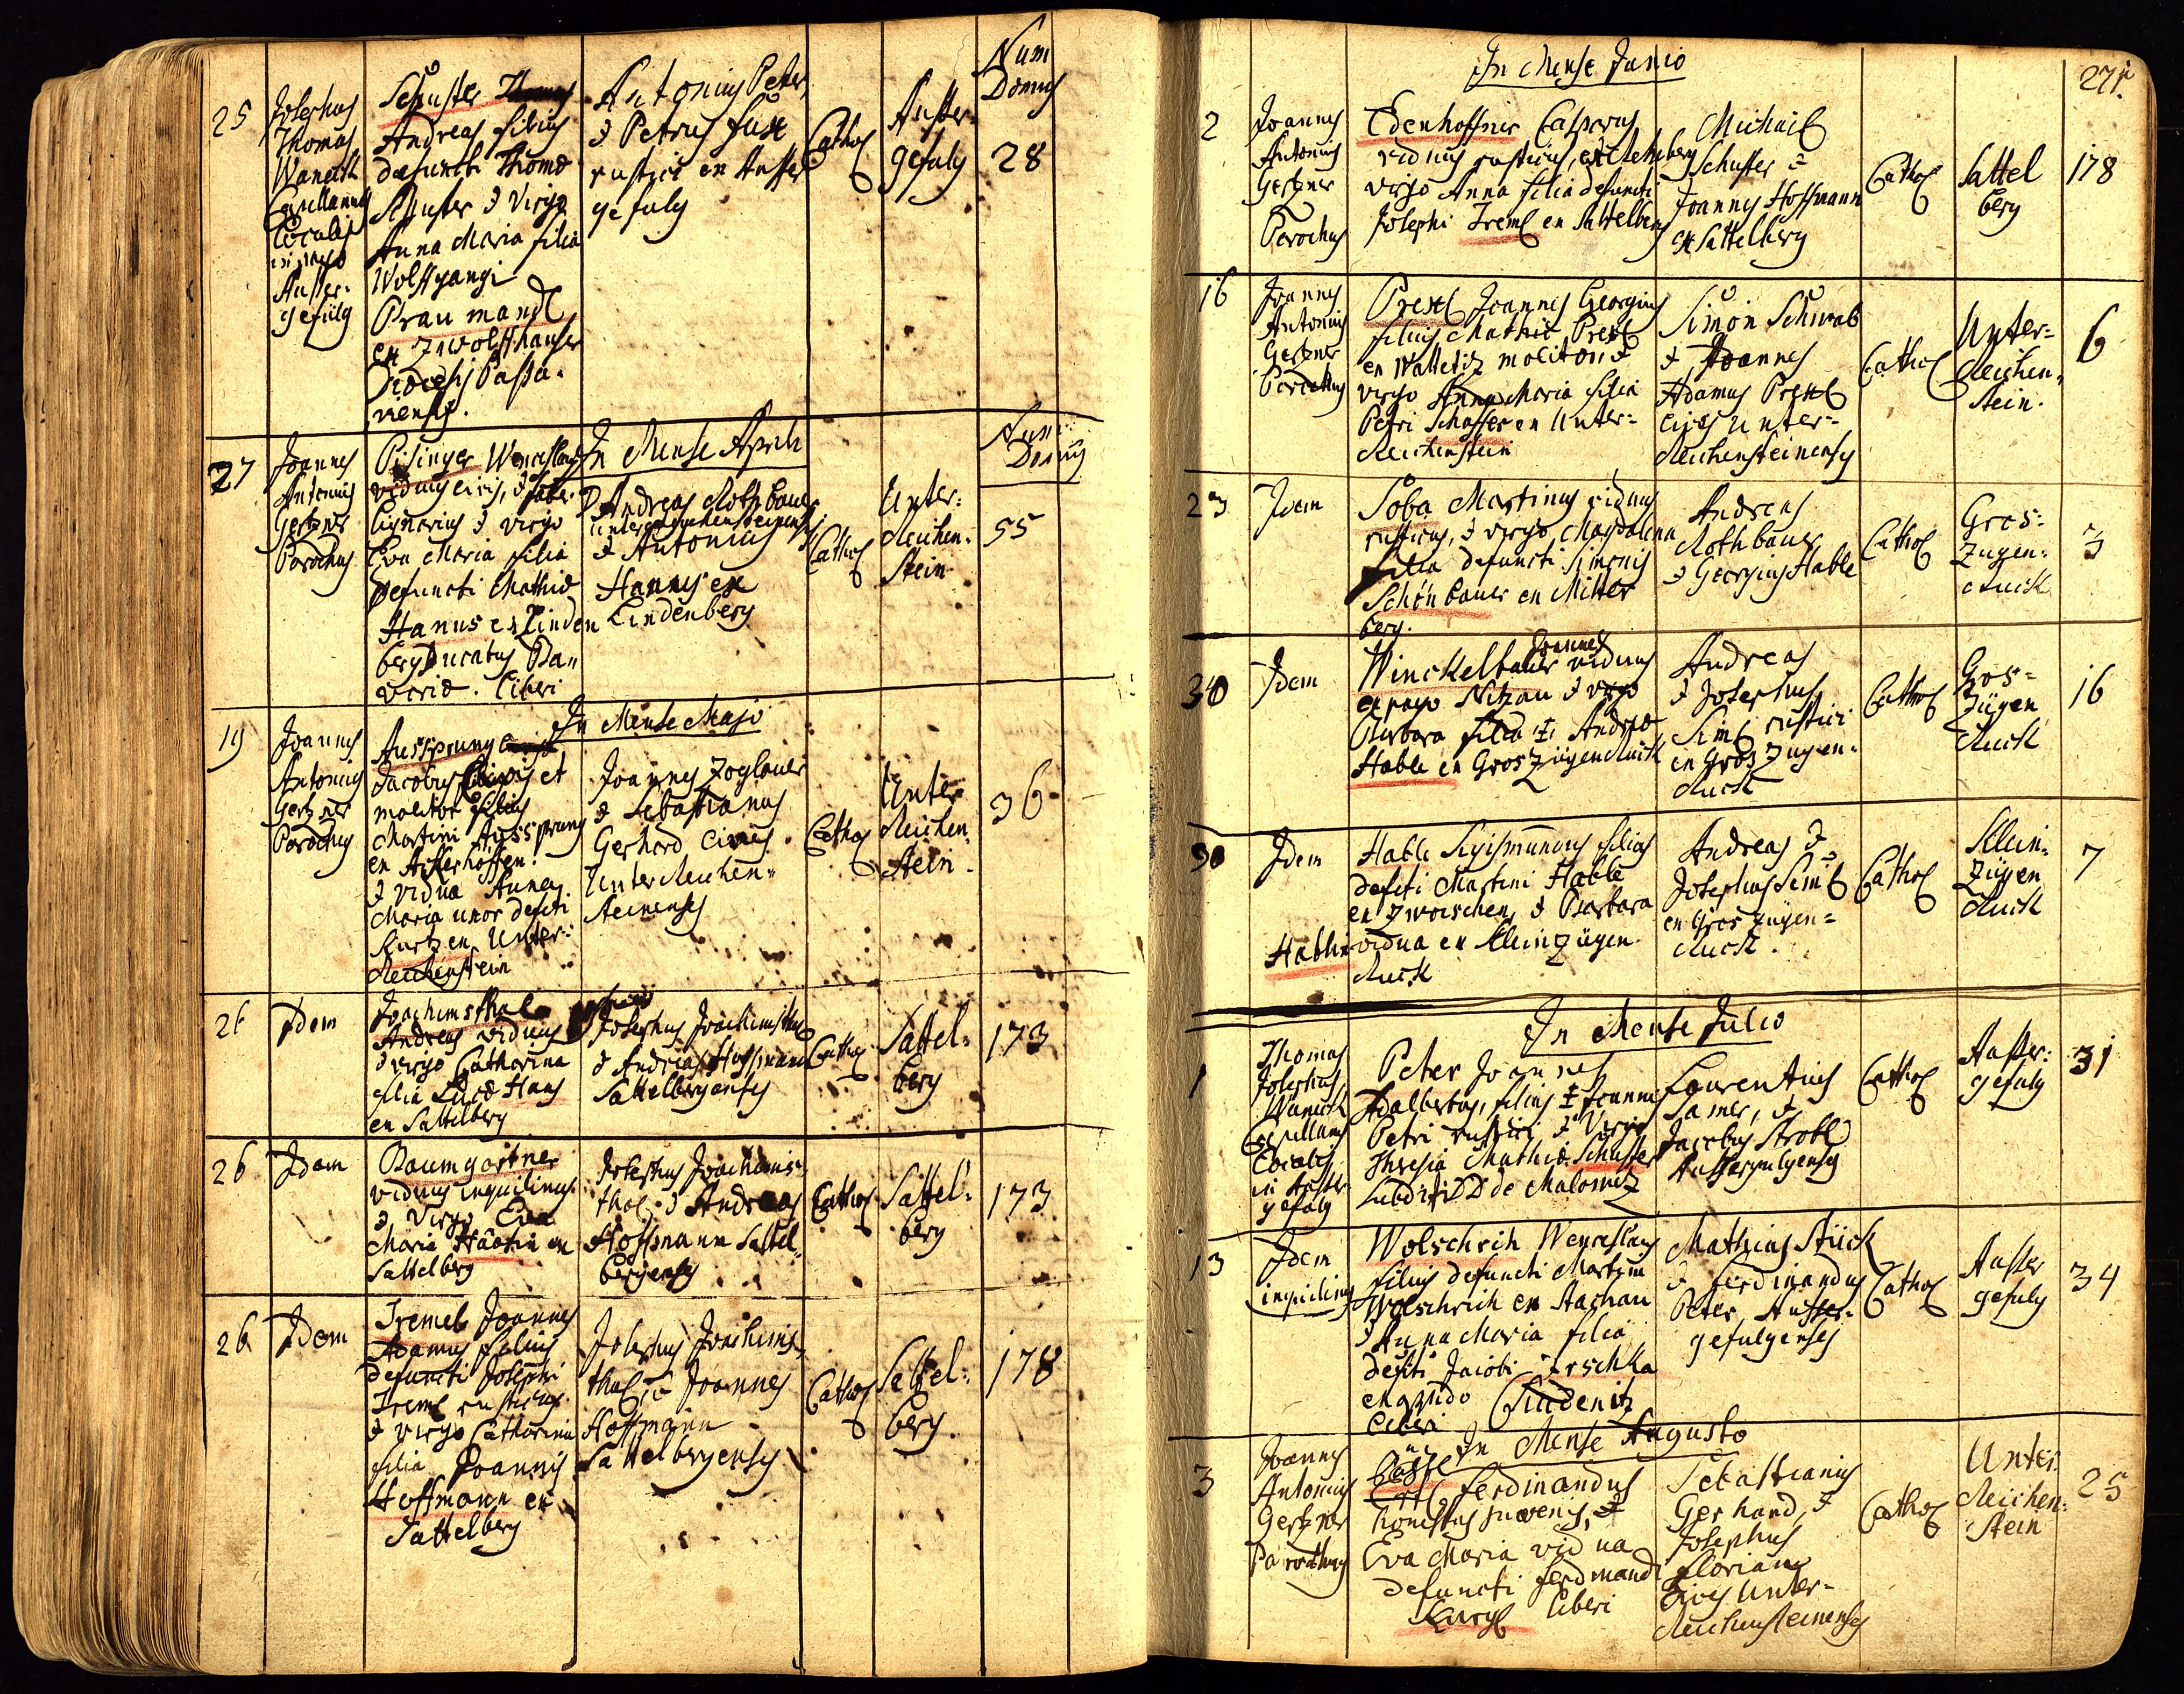 Num
Domus
25
Josephus
Thomas
Capellanus
Localis
Ausser-
gefülg
Schuster
Andreas filius
defuncti Thomæ
Schuster & Virgo
Anna Maria filia
Wolffgangi
Praumandl
ex
Diœcesis Passa-
viensis.
Antonius Peter,
& Petrus
rustici ex Ausser
gefulg
Cathol
Ausser-
gefulg
28
In Mense Aprili
Num:
Domus
27
Joannes
Antonius
Gertzner
Parochus
Pisinger Wenceslaus
viduus civis, & faber
lignarius & virgo
Eva Maria filia
Defuncti Mathiæ
Hanus ex Linden
berg Ducatus Ba-
variæ. liberi
Andreas Rothbauer
& Antonius
Hannes ex
Lindenberg
Cathol
Unter-
Reichen-
stein
55
In Mense Majo
19
Joannes
Antonius
Gertzner
Parochus
Aussprung
Jacobus Civis et
molitor filius
Martini Aussprung
& vidua Anna
Maria uxor defcti
Kurtz ex Unter-
Reichenstein
Joannes Zoglauer
& Sebastianus
Gerhard Cives
Unter Reichen-
steinenses
Cathol
Unter
Reichen-
stein
36
26
Idem
Joachimsthal
Andreas viduus
& virgo Catharina
filia Lucæ Hans
ex Sattelberg
Josephus Joachimsthal
& Andreas Hoffmann
Sattelbergenses
Cathol
Sattel-
berg
173
26
Idem
Baumgartner
viduus inquilinus
& Virgo Eva
Maria
Sattelberg
Josephus Joachims-
thal & Andreas
Hoffmann Sattel-
bergenses
Cathol
Sattel-
berg
173
26
Idem
Tremel Joannes
Adamus filius
defuncti Josephi
Treml rusticus
& virgo Catharina
filia Joannis
Hoffmann ex
Sattelberg
Josephus Joachims-
thal, & Joannes
Hoffmann
Sattelbergenses
Cathol
Sattel-
berg.
178
271.
In Mense Junio
2
Joannes
Antonius
Gertzner
Parochus
Edenhoffner Casparus
viduus rusticus,
virgo Anna filia defuncti
Josephi Treml ex Sattelberg
Michael
Schuster &
Joannes Hoffmann
ex Sattelberg
Cathol
Sattel
berg
178
16
Joannes
Antonius
Gertzner
Parochus
Prexl Joannes Georgius
filius Mathiæ Prexl
ex Watetitz molitor, &
virgo Anna Maria filia
Petri Schaffer ex Unter-
Reichenstein
Simon Schwab
& Joannes
Adamus Prexl
cives Unter-
Reichensteinenses
Cathol
Unter-
Reichen-
stein.
6
23
Idem
Soba Martinus viduus
rusticus, & virgo Magdalena
filia defuncti Simonis
Schönbauer ex Mitter
berg.
Andreas
Rothbauer
& Georgius Hable
Cathol
Gros-
Zugen-
Ruck
3
30
Idem
Joannes
Winckelbauer viduus
ex pago Nitzau & virgo
Barbara filia Andreæ
Hable ex Gros Zügen Ruck
Andreas
& Josephus
Siml rustici
ex Gros Zugen-
Ruck
Cathol
Gros-
Zügen
Ruck
16
30
Idem
Hable Sigismundus filius
defcti Martini Hable
ex Zwoischen, & Barbara
Hablin vidua ex Kleinzügen
Ruck
Andreas &
Josephus Siml
ex Gros Zügen-
Ruck.
Cathol
Klein-
Zügen
Ruck
7
In Mense Julio
1
Thomas
Josephus
Capellanus
Localis
in Ausser-
gefulg
Peter Joannes
Adalbertus, filius Joannis
Petri rustici & Virgo
Theresia Mathiæ Schuster
Subditi DD de Malowetz
Laurentius
Samer, &
Jacobus Strobl
Aussergefulgenses
Cathol
Ausser-
gefulg
31
13
Idem
inquilinus
Wolschrih Wenceslaus
filius defuncti Martini
Wolschrich ex Stachau
& Anna Maria filia
defcti Jacobi
liberi
Mathias Stück
& Ferdinandus
Peter Ausser-
gefulgenses
Cathol
Ausser
gefulg
34
In Mense Augusto
3
Joannes
Antonius
Gertzner
Parochus
Ferdinandus
honestus juvenis, &
Eva Maria vidua
defuncti Ferdinandi
liberi
Sebastianus
Gerhard, &
Josephus
Florian
Cives Unter-
Reichensteinenses
Cathol
Unter
Reichen-
stein
25